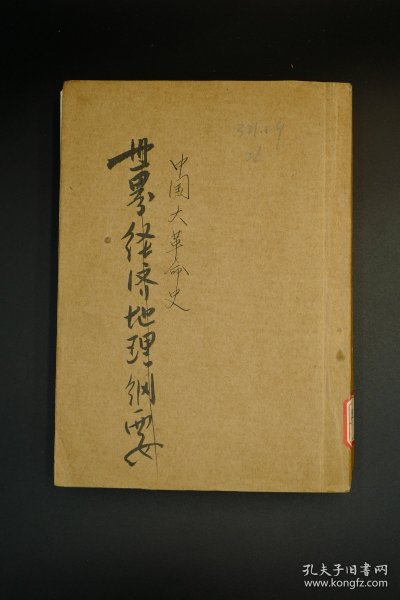 世界经济地理纲要
中国大革命史
孔夫子旧书网
www.kongfz.com